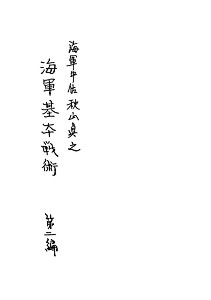 海軍中佐秋山真之
海軍基本戦術 第二編